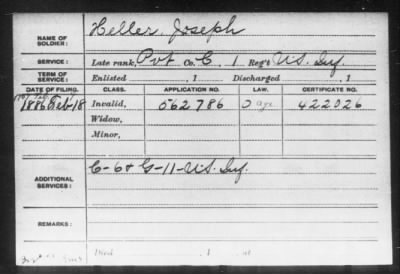 NAME OF SOLDIER: Heller, Joseph
SERVICE: Late rank, Pvt Co. C, 1 Reg't U.S. Inf.
TERM OF SERVICE: Enlisted , 1 Discharged , 1
DATE OF FILING. CLASS. APPLICATION NO. LAW. CERTIFICATE NO.
1886 Feb 18 Invalid, 562786 422026
Widow,
Minor,
ADDITIONAL SERVICES: C-6 & G-11-U.S. Inf.
REMARKS:
Died , 1 , at